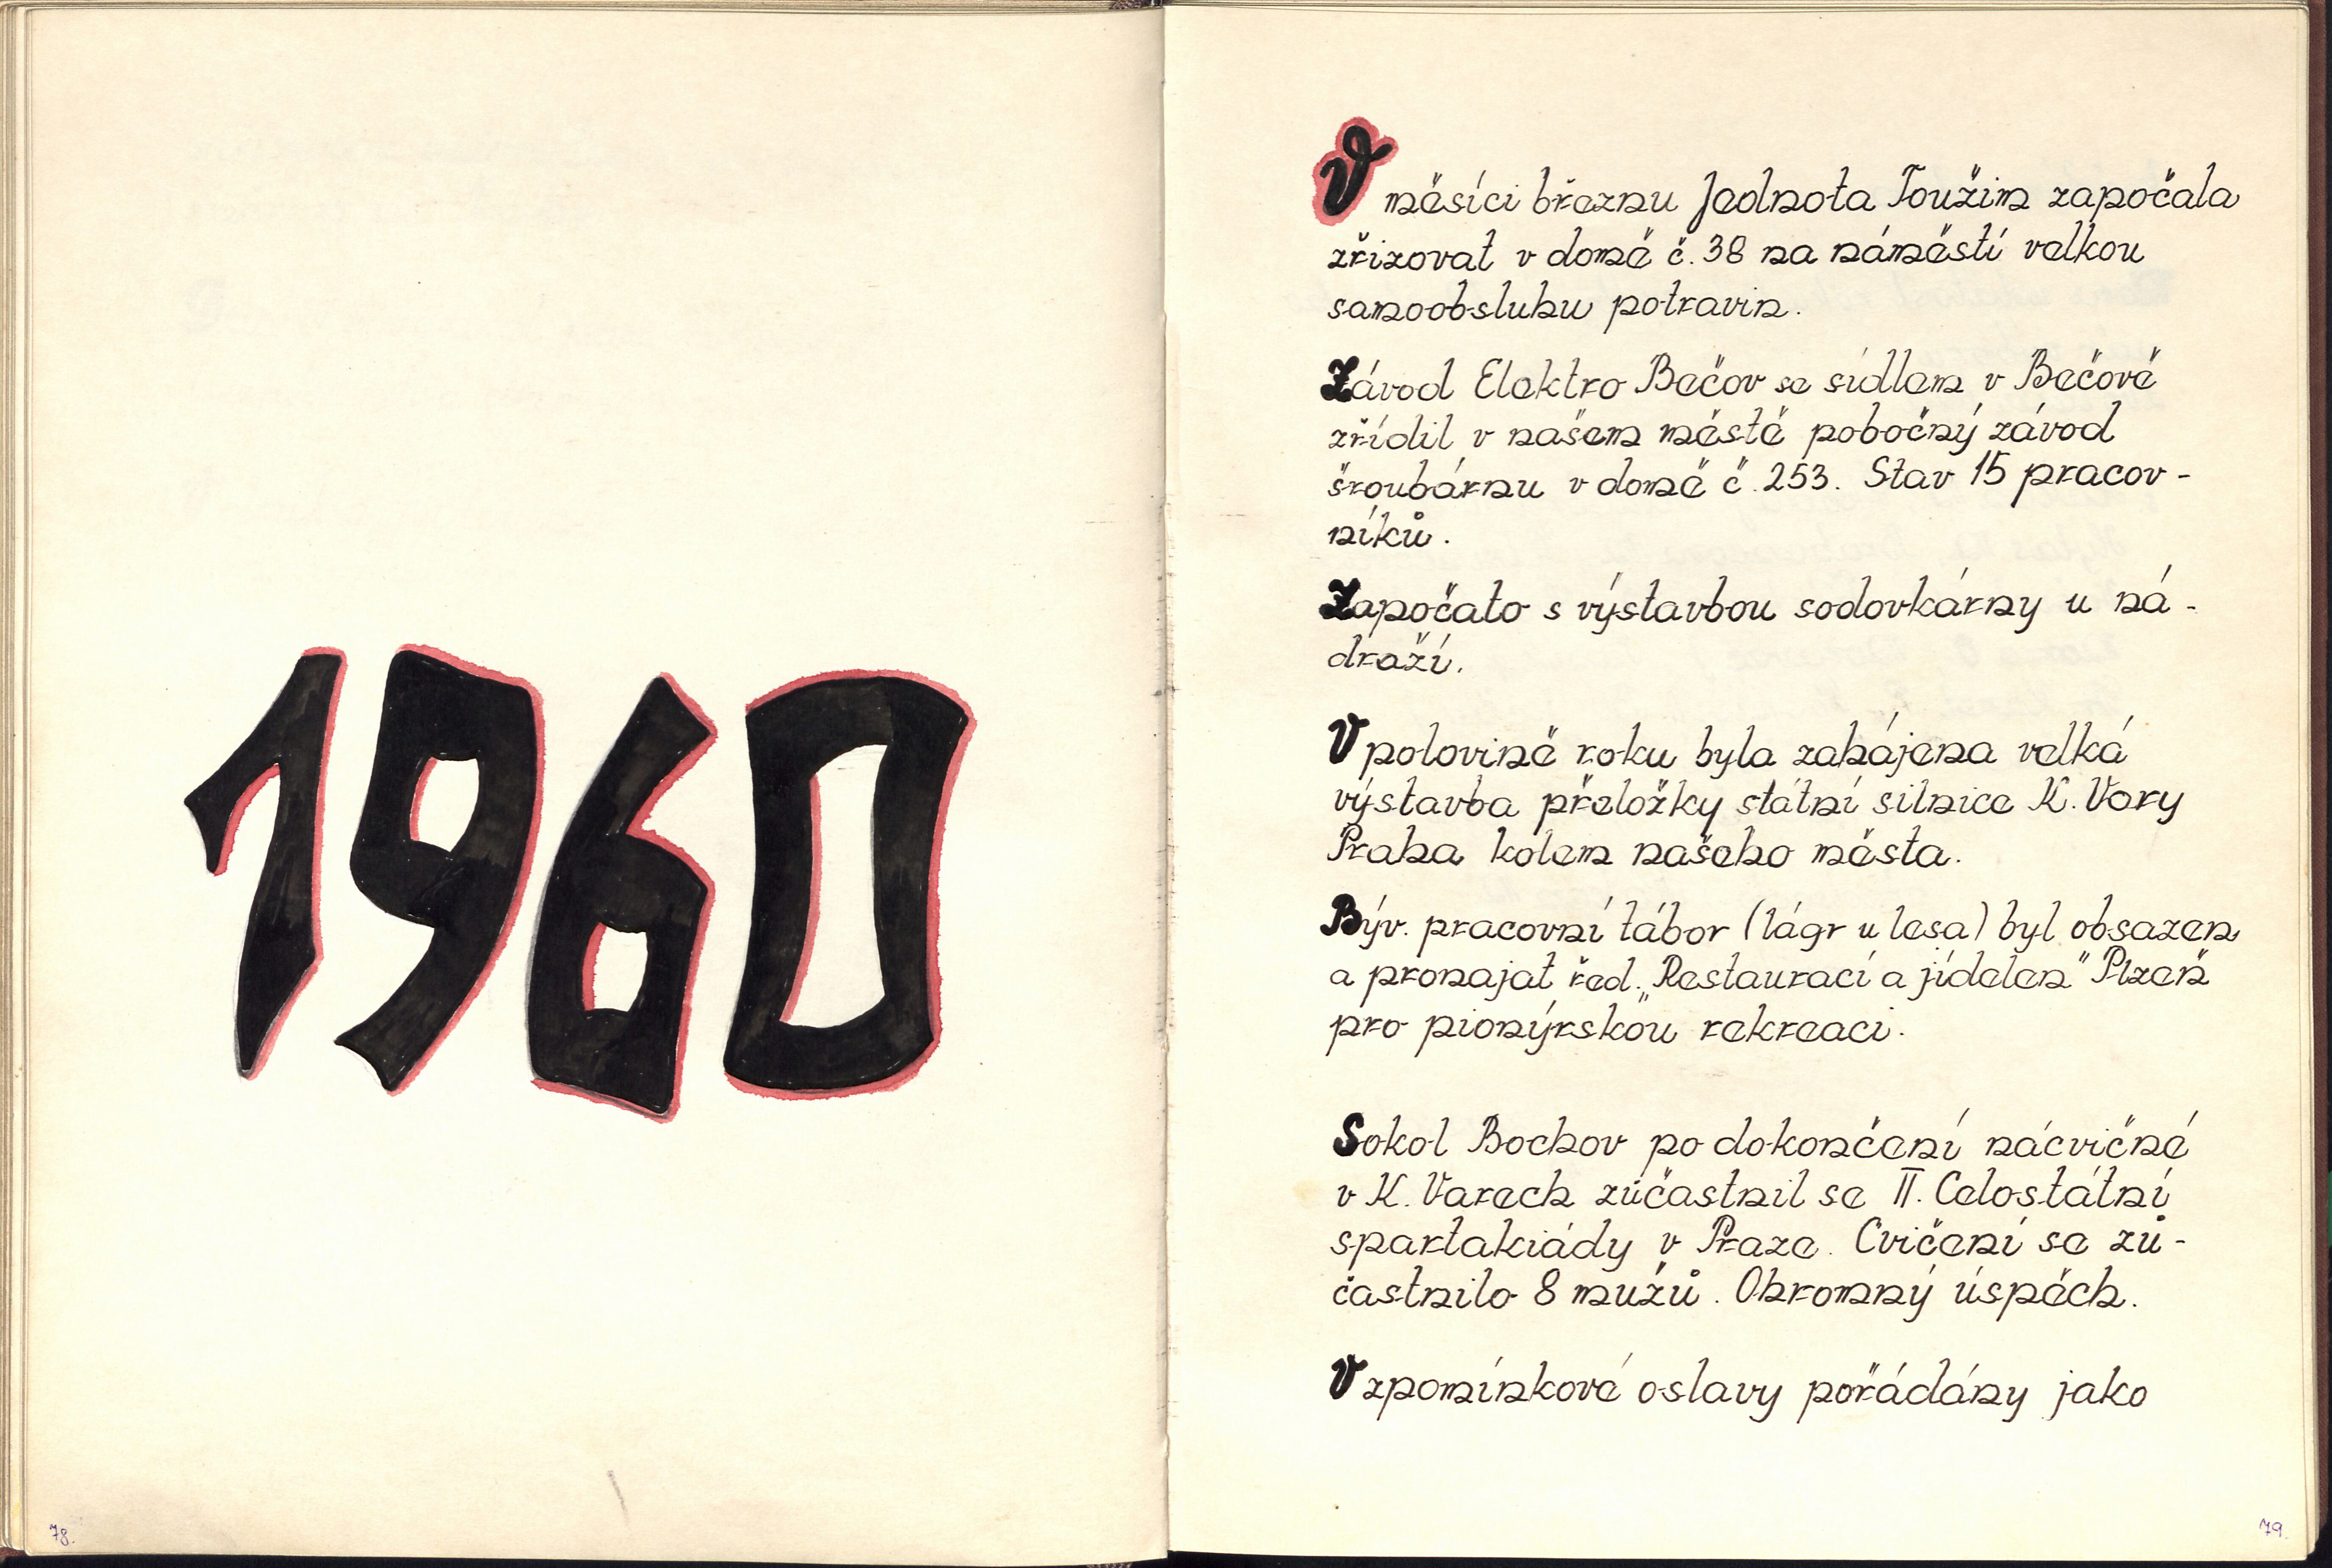 1960
78.
V měsíci březnu Jednota Toužim započala
zřizovat v domě č. 38 na náměstí velkou
samoobsluhu potravin.
Závod Elektro Bečov se sídlem v Bečově
zřídil v našem městě pobočný závod
šroubárnu v domě č. 253. Stav 15 pracov-
níků.
Započato s výstavbou sodovkárny u ná-
draží.
V polovině roku byla zahájena velká
výstavba přeložky státní silnice K. Vary
Praha kolem našeho města.
Býv. pracovní tábor (lágr u lesa) byl obsazen
a pronajat řed. „Restaurací a jídelen" Plzeň
pro pionýrskou rekreaci.
Sokol Bochov po dokončení nácvičné
v K. Varech zúčastnil se II. Celostátní
spartakiády v Praze. Cvičení se zú-
častnilo 8 mužů. Ohromný úspěch.
Vzpomínkové oslavy pořádány jako
79.